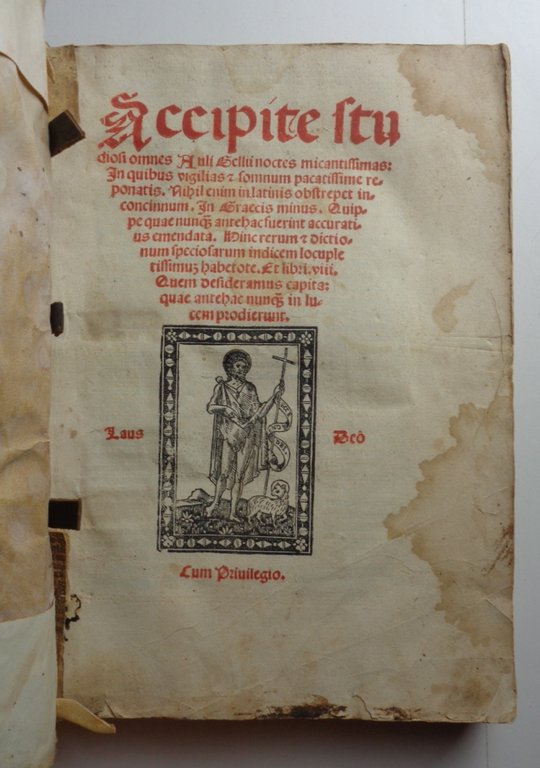 Accipite stu
diosi omnes Auli Gellii noctes micantissimas:
In quibus vigilias ⁊ somnum pacatissime re⸗
ponatis. Nihil enim in latinis obstrepet in⸗
concinnum. In Graecis minus. Quip⸗
pe quae nunqȝ antehac fuerint accurati⸗
us emendata. Hinc rerum ⁊ dictio⸗
num speciosarum indicem locuple
tissimuȝ habetote. Et libri. viii.
Quem desideramus capita:
quae antehac nunqȝ in lu⸗
cem prodierunt.
Laus Deo
Cum Priuilegio.